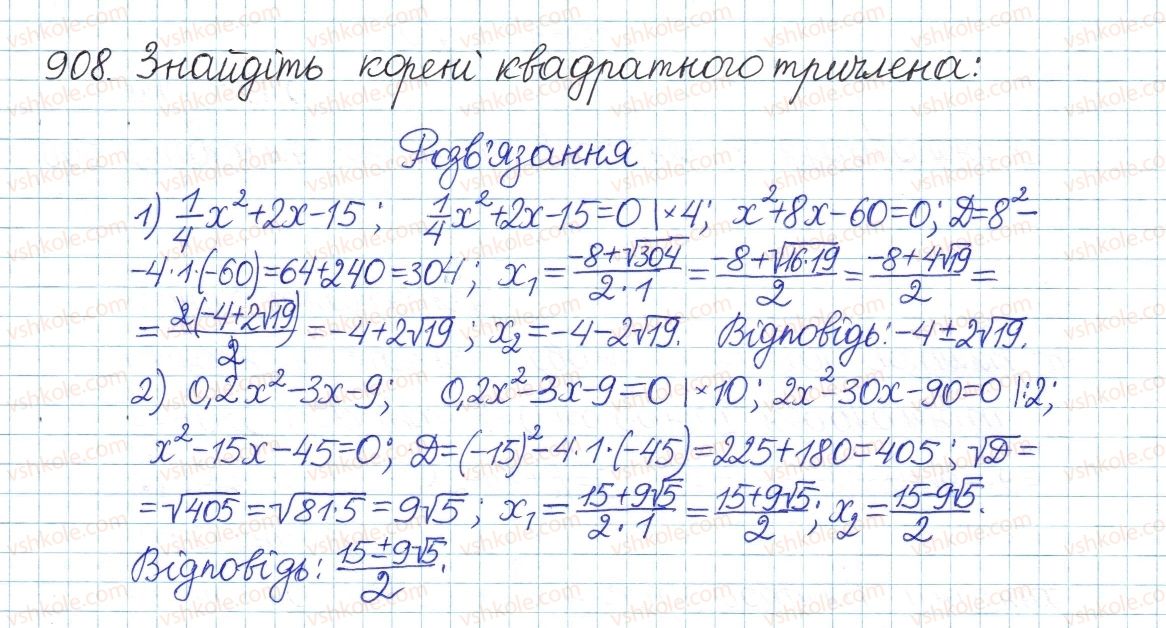 908. Знайдіть корені квадратного тричлена:
Розв'язання
1) 1/4 x² + 2x - 15; 1/4 x² + 2x - 15 = 0 | × 4; x² + 8x - 60 = 0; D = 8² -
- 4 · 1 · (-60) = 64 + 240 = 304; x₁ = (-8 + √304)/(2 · 1) = (-8 + √(16 · 19))/2 = (-8 + 4√19)/2 =
= 2(-4 + 2√19)/2 = -4 + 2√19; x₂ = -4 - 2√19. Відповідь: -4 ± 2√19.
2) 0,2x² - 3x - 9; 0,2x² - 3x - 9 = 0 | × 10; 2x² - 30x - 90 = 0 | : 2;
x² - 15x - 45 = 0; D = (-15)² - 4 · 1 · (-45) = 225 + 180 = 405; √D =
= √405 = √(81 · 5) = 9√5; x₁ = (15 + 9√5)/(2 · 1) = (15 + 9√5)/2; x₂ = (15 - 9√5)/2.
Відповідь: (15 ± 9√5)/2.
vshkole.com